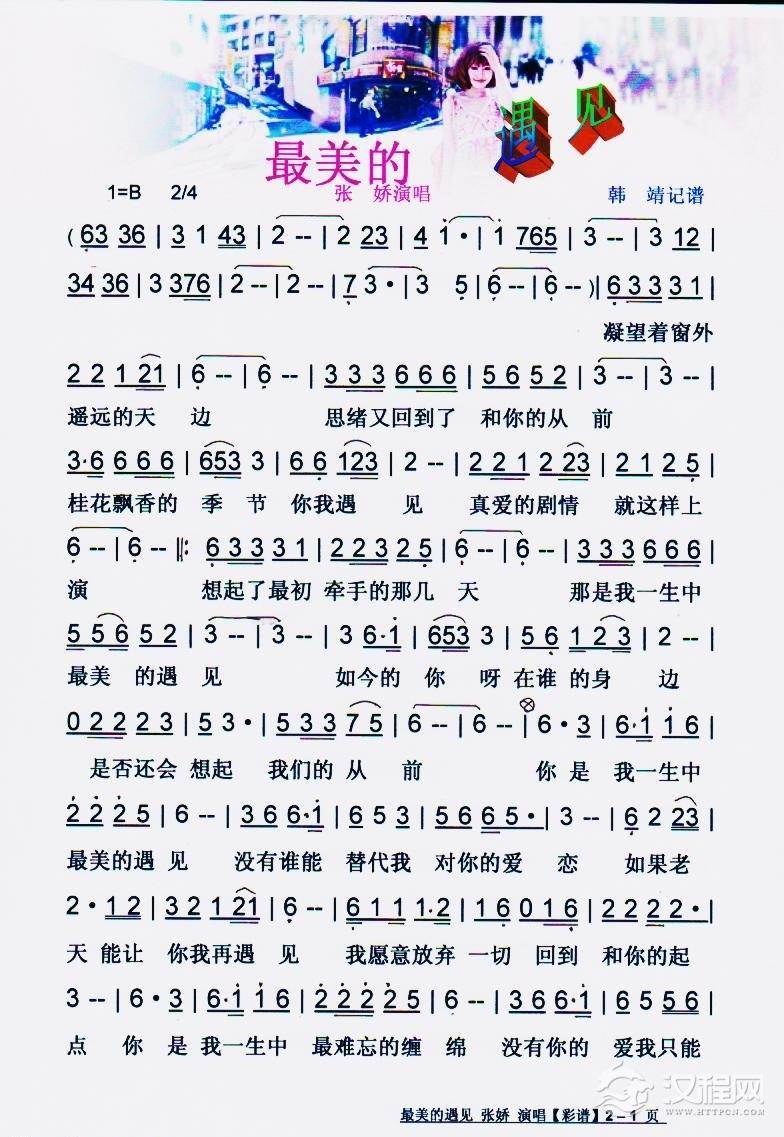 最美的 遇见
1=B 2/4 张 娇演唱 韩 靖记谱
( 63 36 | 3 1 43 | 2 -- | 2 23 | 4 1 · | 1 765 | 3 -- | 3 12 |
34 36 | 3 376 | 2 -- | 2 -- | 7 3 · | 3 5 | 6 -- | 6 -- )| 6 3 3 3 1 |
凝望着窗外
2 2 1 21 | 6 -- | 6 -- | 3 3 3 6 6 6 | 5 6 5 2 | 3 -- | 3 -- |
遥远的天 边 思绪又回到了 和你的从 前
3·6 6 6 6 | 653 3 | 6 6 123 | 2 -- | 2 2 1 2 23 | 2 1 2 5 |
桂花飘香的 季 节 你我遇 见 真爱的剧情 就这样上
6 -- | 6 -- |: 6 3 3 3 1 | 2 2 3 2 5 | 6 -- | 6 -- | 3 3 3 6 6 6 |
演 想起了最初 牵手的那几 天 那是我一生中
5 5 6 5 2 | 3 -- | 3 -- | 3 6·1 | 653 3 | 5 6 1 2 3 | 2 -- |
最美 的遇 见 如今的 你 呀 在谁 的身 边
0 2 2 2 3 | 5 3 · | 5 3 3 7 5 | 6 -- | 6 -- | 6 · 3 | 6·1 1 6 |
是否还会 想起 我们的 从 前 你 是 我一生中
2 2 2 5 | 6 -- | 3 6 6·1 | 3 3 2 1 | 5 6 6 5 · | 3 -- | 6 2 23 |
最美的遇 见 没有谁能 替代我 对你的爱 恋 如果老
2 · 1 2 | 3 2 1 21 | 6 -- | 6 1 1 1·2 | 1 6 0 1 6 | 2 2 2 · |
天 能让 你我再遇 见 我愿意放弃 一切 回到 和你的起
3 -- | 6 · 3 | 6·1 1 6 | 2 2 2 2 5 | 6 -- | 3 6 6·1 | 6 5 5 6 |
点 你 是 我一生中 最难忘的缠 绵 没有你的 爱我只能
最美的遇见 张娇 演唱【彩谱】2－1 页
汉程网
WWW.HTTPCN.COM